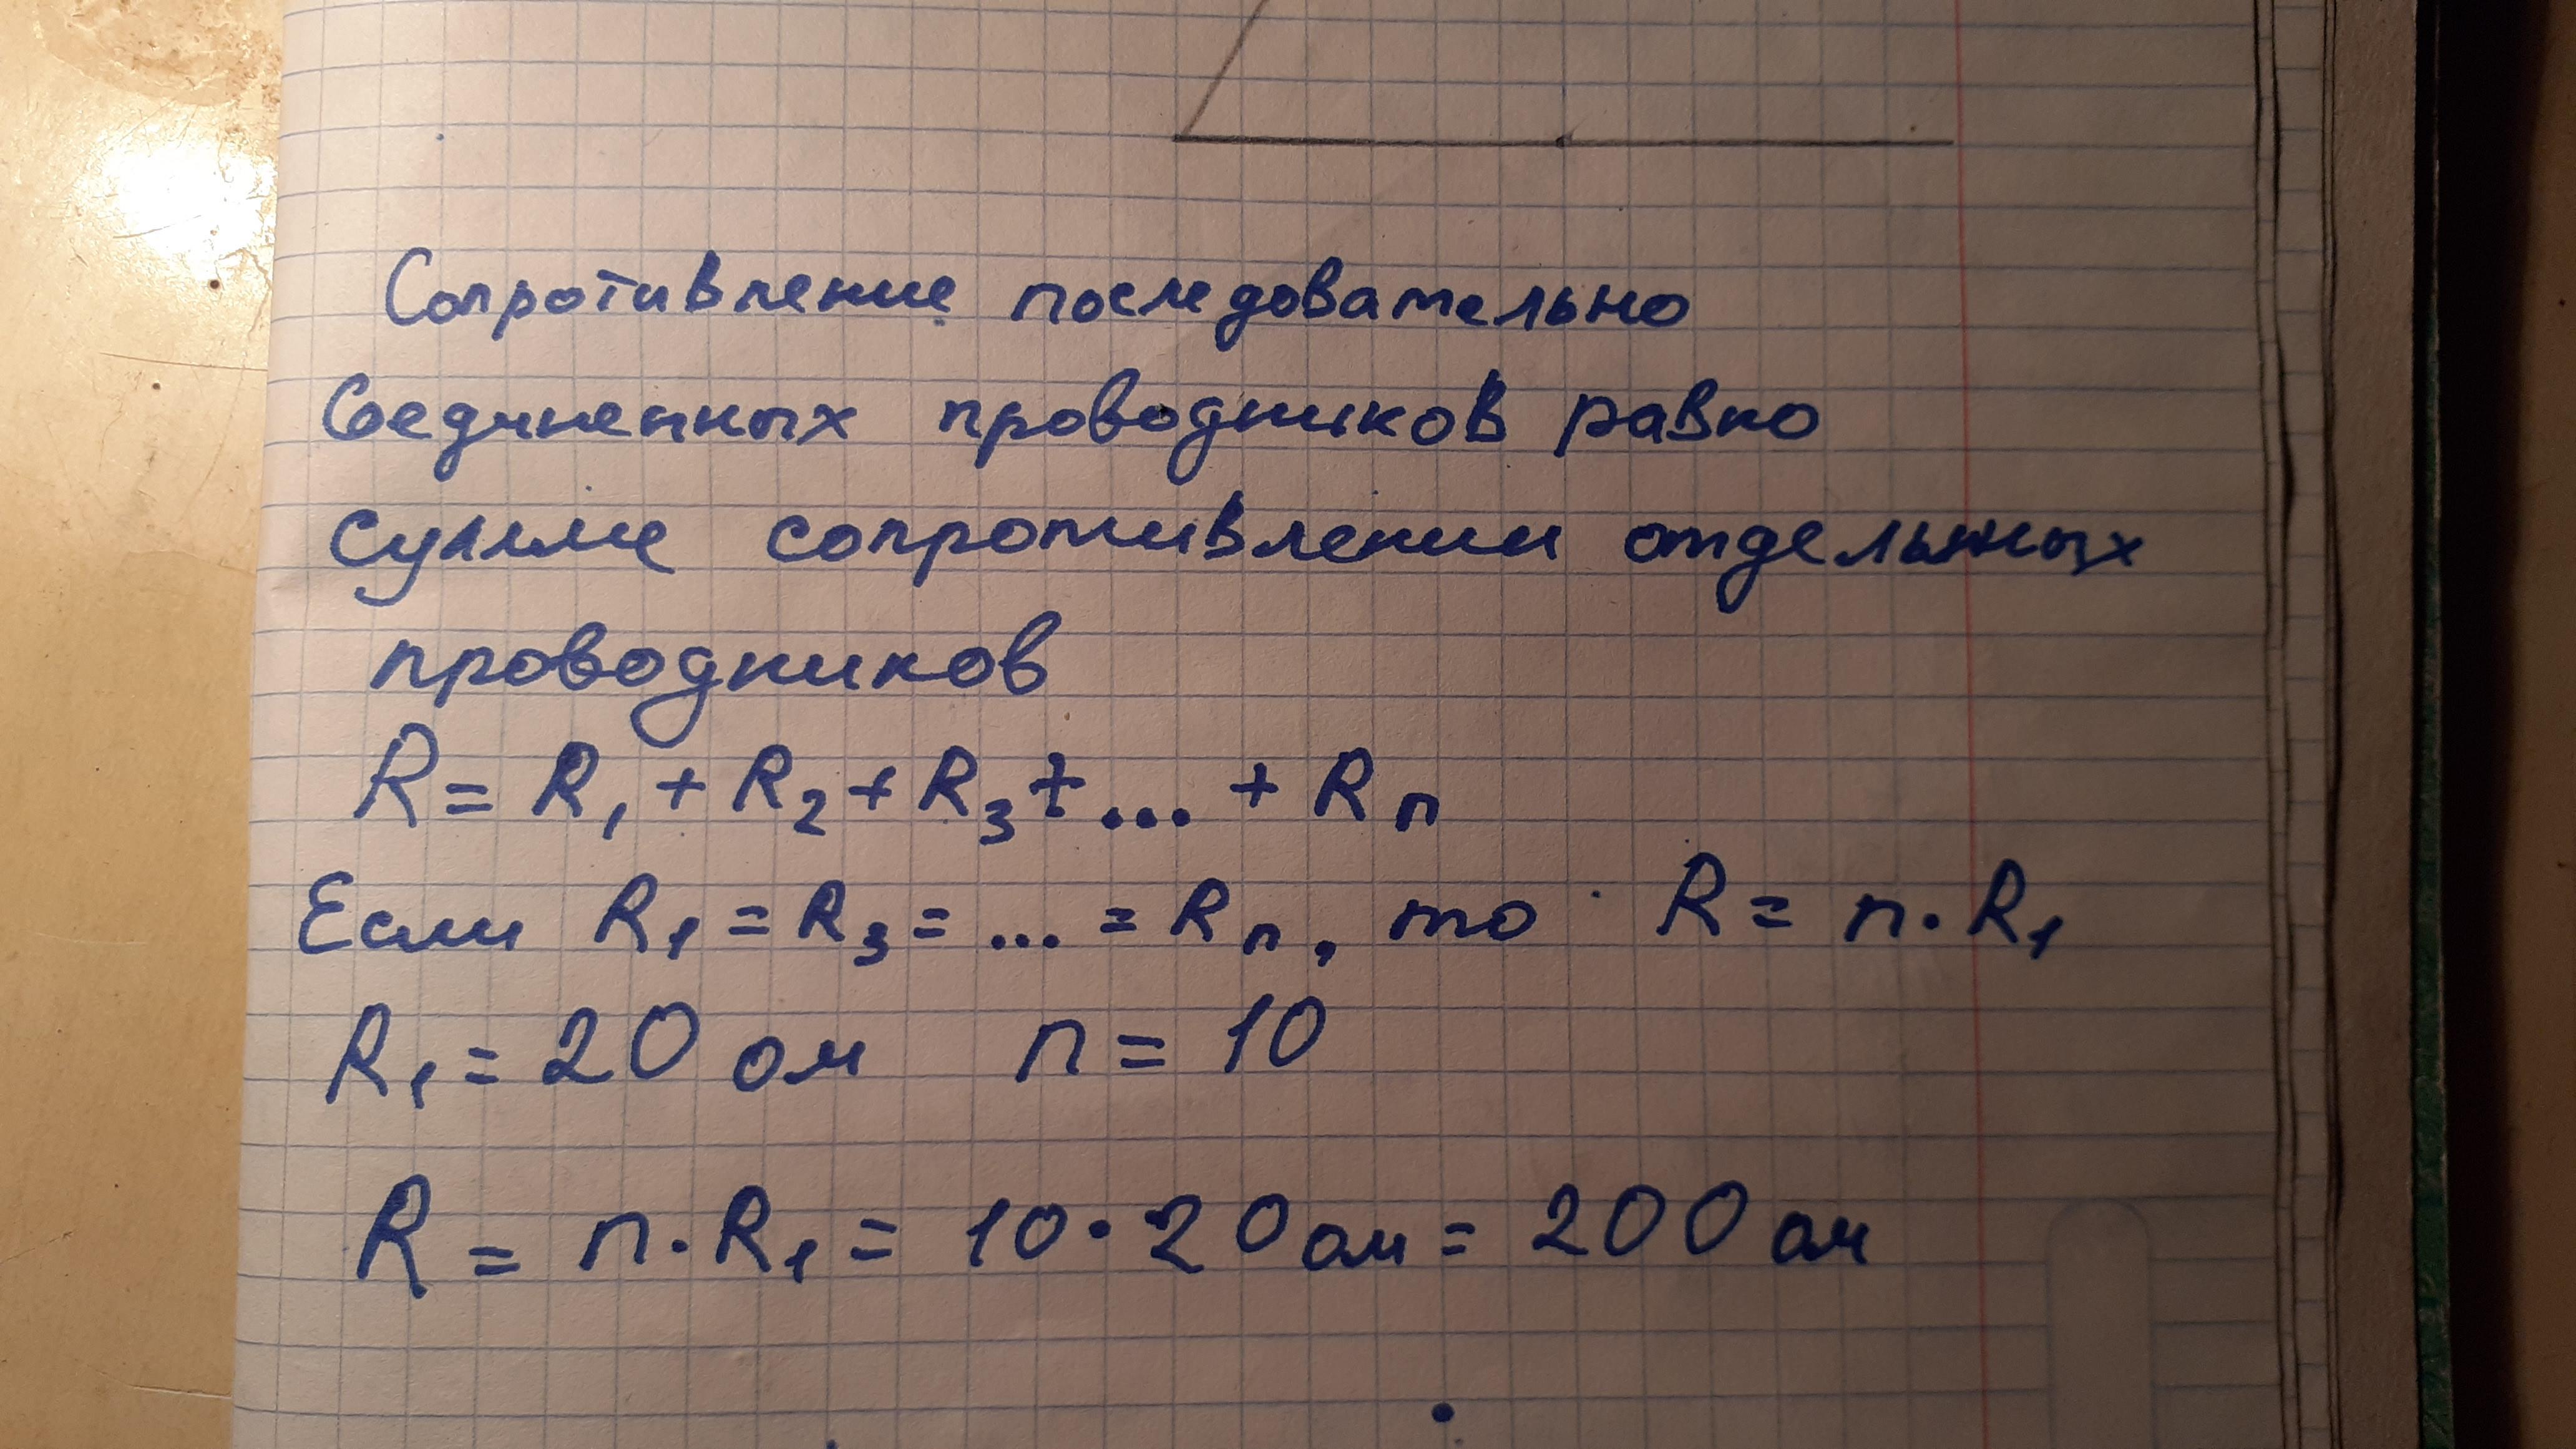 Сопротивление последовательно
Соединенных проводников равно
сумме сопротивлении отдельных
проводников
R = R₁ + R₂ + R₃ + ... + Rп
Если R₁ = R₃ = ... = Rп, то R = п · R₁
R₁ = 20 ом п = 10
R = п · R₁ = 10 · 20 ом = 200 ом